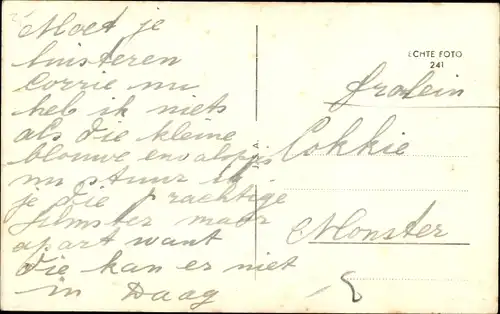 Moet je
luisteren
Corrie nu
heb ik niets
als die kleine
blouwe ensalopjes
nu stuur ik
je die prachtige
filmster maar
apart want
die kan er niet
in Daag
ECHTE FOTO
241
frolein
Cokkie
Monster